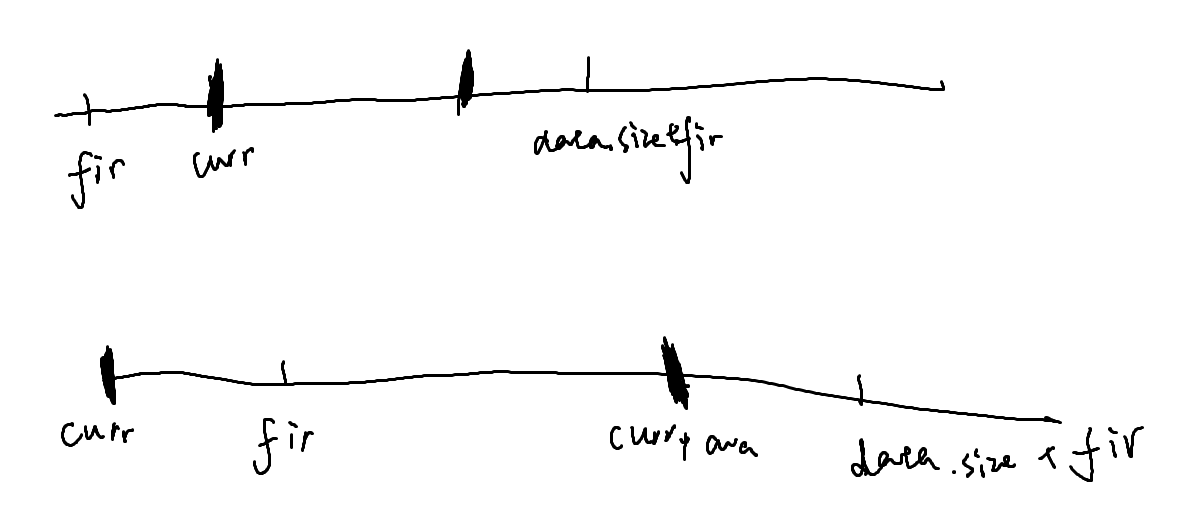 fir curr data.size+fir
curr fir curr+ava data.size + fir